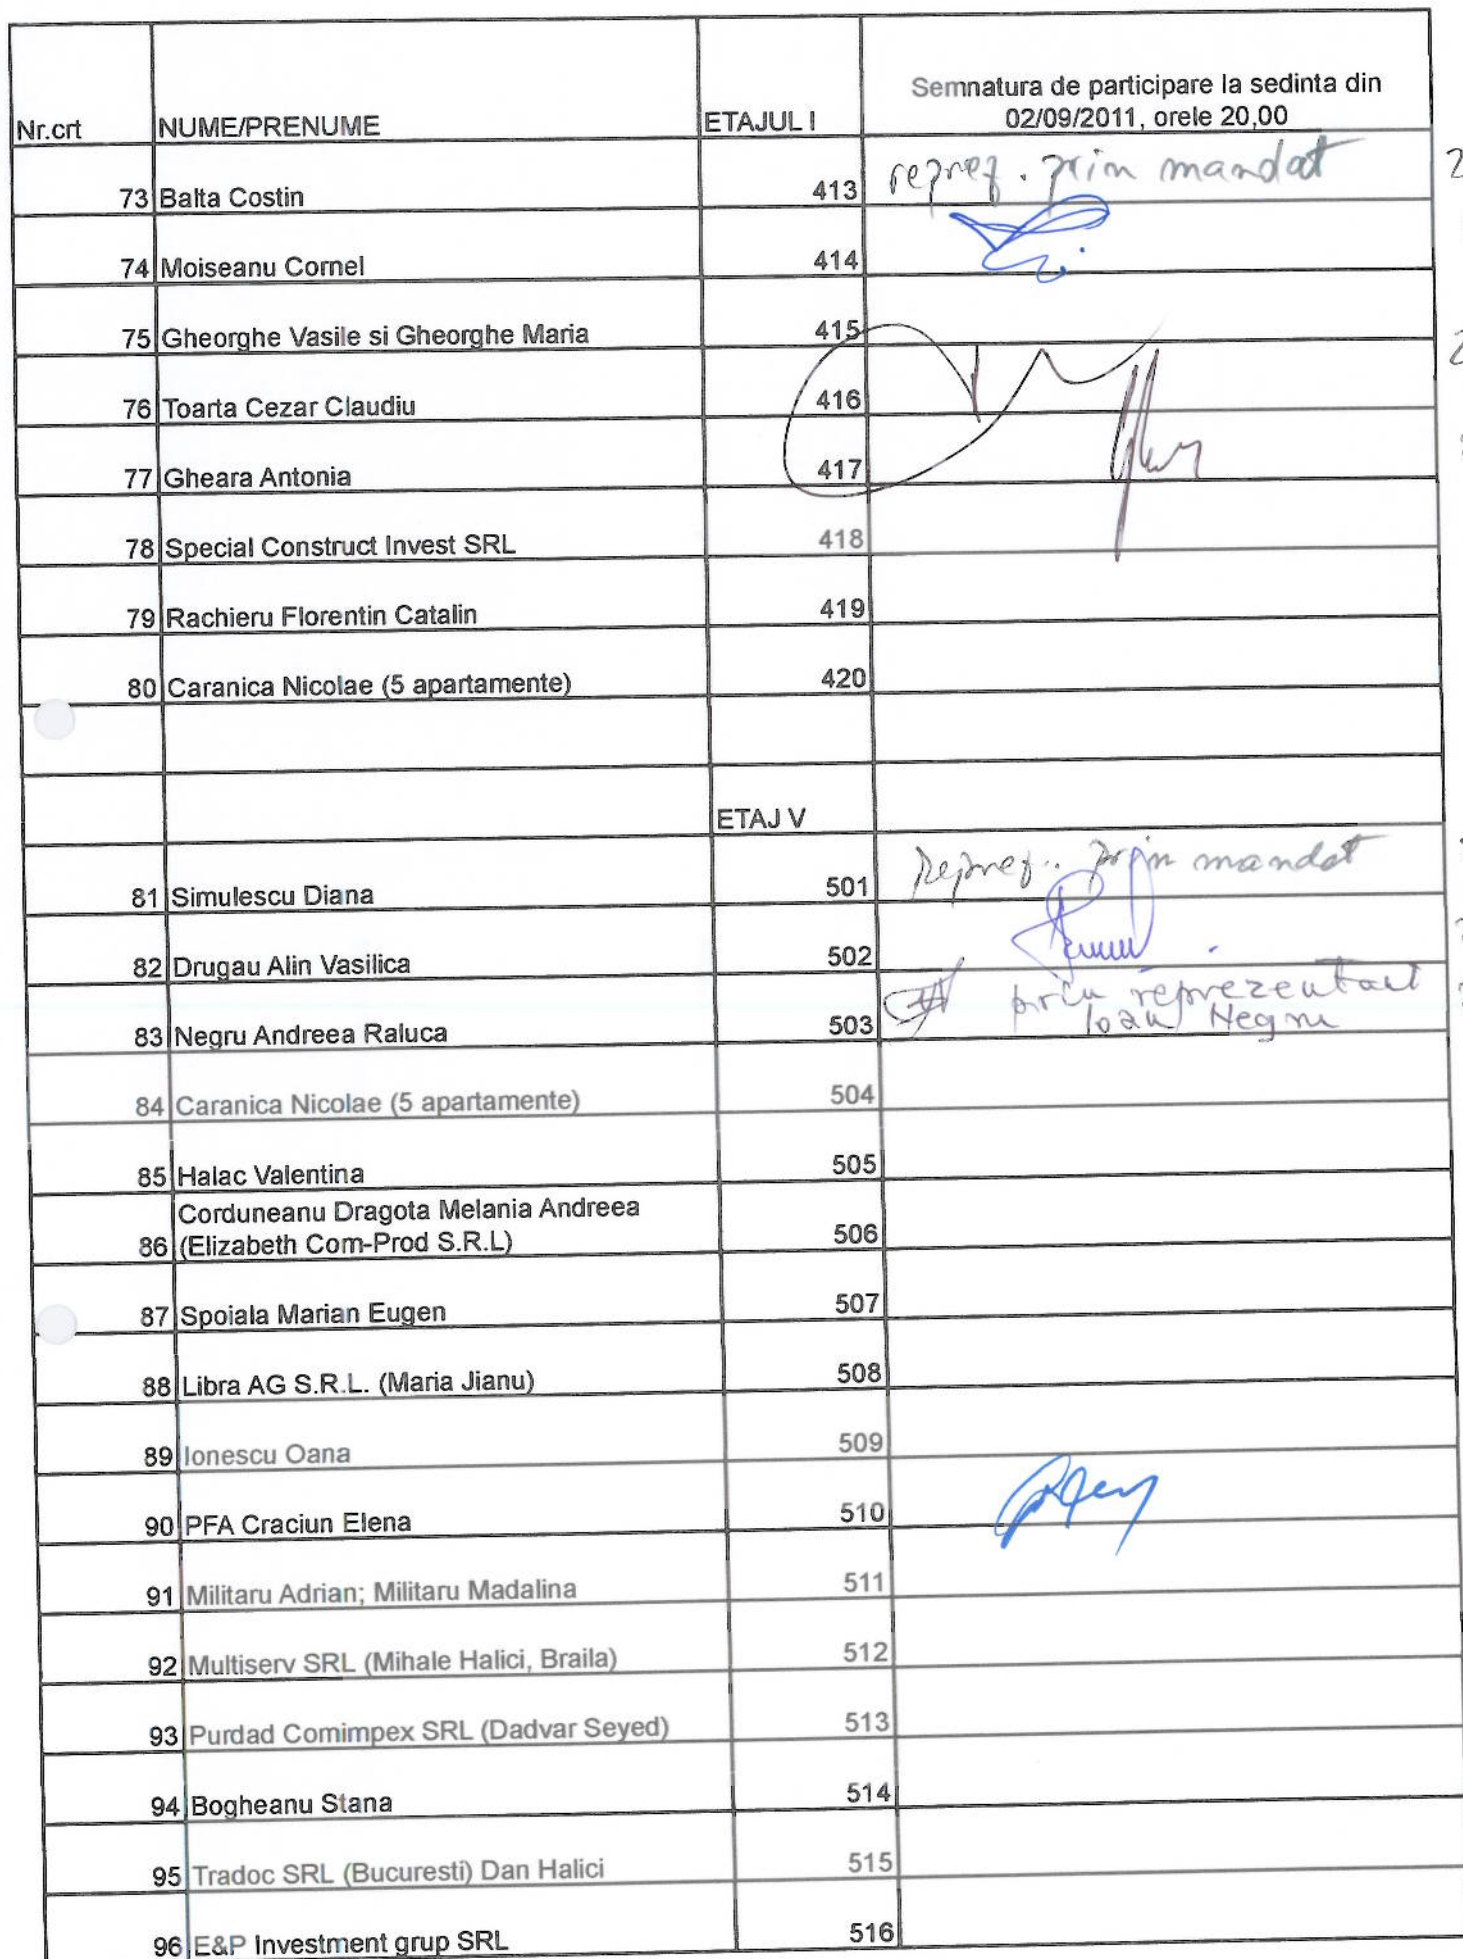 Semnatura de participare la sedinta din
Nr.crt NUME/PRENUME ETAJUL I 02/09/2011, orele 20,00
73 Balta Costin 413 reprez. prin mandat 2
74 Moiseanu Cornel 414
75 Gheorghe Vasile si Gheorghe Maria 415
76 Toarta Cezar Claudiu 416
77 Gheara Antonia 417
78 Special Construct Invest SRL 418
79 Rachieru Florentin Catalin 419
80 Caranica Nicolae (5 apartamente) 420
ETAJ V
81 Simulescu Diana 501 Reprez.. prin mandat
82 Drugau Alin Vasilica 502
prin reprezentant
83 Negru Andreea Raluca 503 Ioan Negru
84 Caranica Nicolae (5 apartamente) 504
85 Halac Valentina 505
Corduneanu Dragota Melania Andreea
86 (Elizabeth Com-Prod S.R.L) 506
87 Spoiala Marian Eugen 507
88 Libra AG S.R.L. (Maria Jianu) 508
89 Ionescu Oana 509
90 PFA Craciun Elena 510
91 Militaru Adrian; Militaru Madalina 511
92 Multiserv SRL (Mihale Halici, Braila) 512
93 Purdad Comimpex SRL (Dadvar Seyed) 513
94 Bogheanu Stana 514
95 Tradoc SRL (Bucuresti) Dan Halici 515
96 E&P Investment grup SRL 516